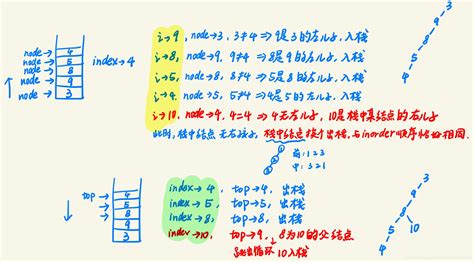 node→ 4
node→ 5
node→ 8
node→ 9
node→ 3
index→4
i→9, node→3, 3≠4 ⇒9是3的左儿子,入栈
i→8, node→9, 9≠4 ⇒8是9的左儿子,入栈
i→5, node→8, 8≠4 ⇒5是8的左儿子,入栈
i→4. node→5, 5≠4 ⇒4是5的左儿子,入栈
i→10, node→4, 4=4 ⇒4无左儿子, 10是栈中某结点的右儿子
此时,栈中结点无右孩子,栈中结点挨个出栈,与inorder顺序恰好相同.
前:1 2 3
中:3 2 1
3
9
8
5
4
top→ 4
5
8
9
3
index→4, top→4, 出栈
index→5, top→5, 出栈
index→8, top→8, 出栈
index→10, top→9, 8为10的父结点
跳出循环 10入栈
3
9
8 10
5
4